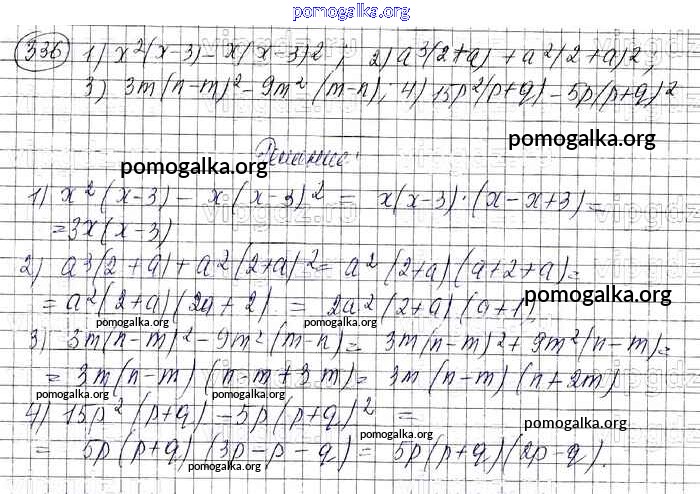 pomogalka.org
336 1) x²(x-3) - x(x-3)²; 2) a³(2+a) + a²(2+a)²;
3) 3m(n-m)² - 9m²(m-n); 4) 15p²(p+q) - 5p(p+q)²
pomogalka.org
Решение:
pomogalka.org
1) x²(x-3) - x(x-3)² = x(x-3)·(x-x+3) =
= 3x(x-3)
2) a³(2+a) + a²(2+a)² = a²(2+a)(a+2+a) =
= a²(2+a)(2a+2) = 2a²(2+a)(a+1)
pomogalka.org
pomogalka.org pomogalka.org
3) 3m(n-m)² - 9m²(m-n) = 3m(n-m)² + 9m²(n-m) =
= 3m(n-m)(n-m+3m) = 3m(n-m)(n+2m)
pomogalka.org pomogalka.org
4) 15p²(p+q) - 5p(p+q)² =
pomogalka.org
pomogalka.org
= 5p(p+q)(3p-p-q) = 5p(p+q)(2p-q).
pomogalka.org